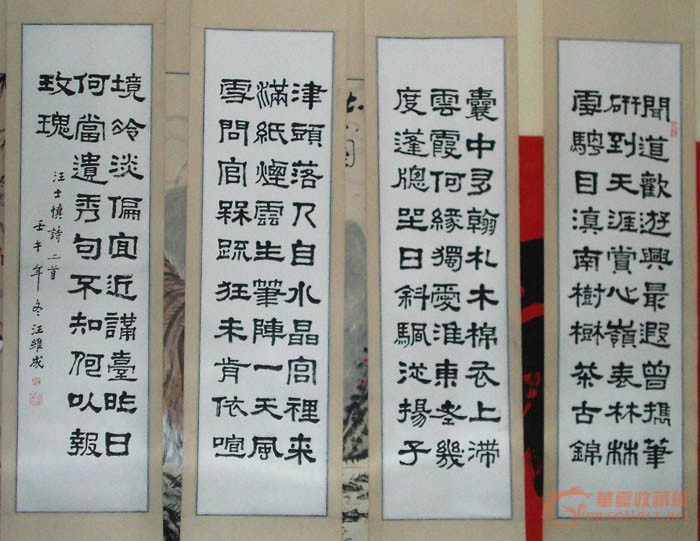 聞道歡遊興最遐曾攜筆
研到天涯賞心嶺表林林
雨騁目滇南樹樹茶古錦
囊中多翰札木棉衣上滯
雲霞何緣獨愛淮東老幾
度蓬牕坐日斜颿從揚子
津頭落人自水晶宮裡來
滿紙煙雲生筆陣一天風
雪問官槑疏狂未肯依喧
境冷淡偏宜近講臺昨日
何當遺秀句不知何以報
玫瑰
汪士慎詩二首
壬午年冬汪維成
華夏收藏網